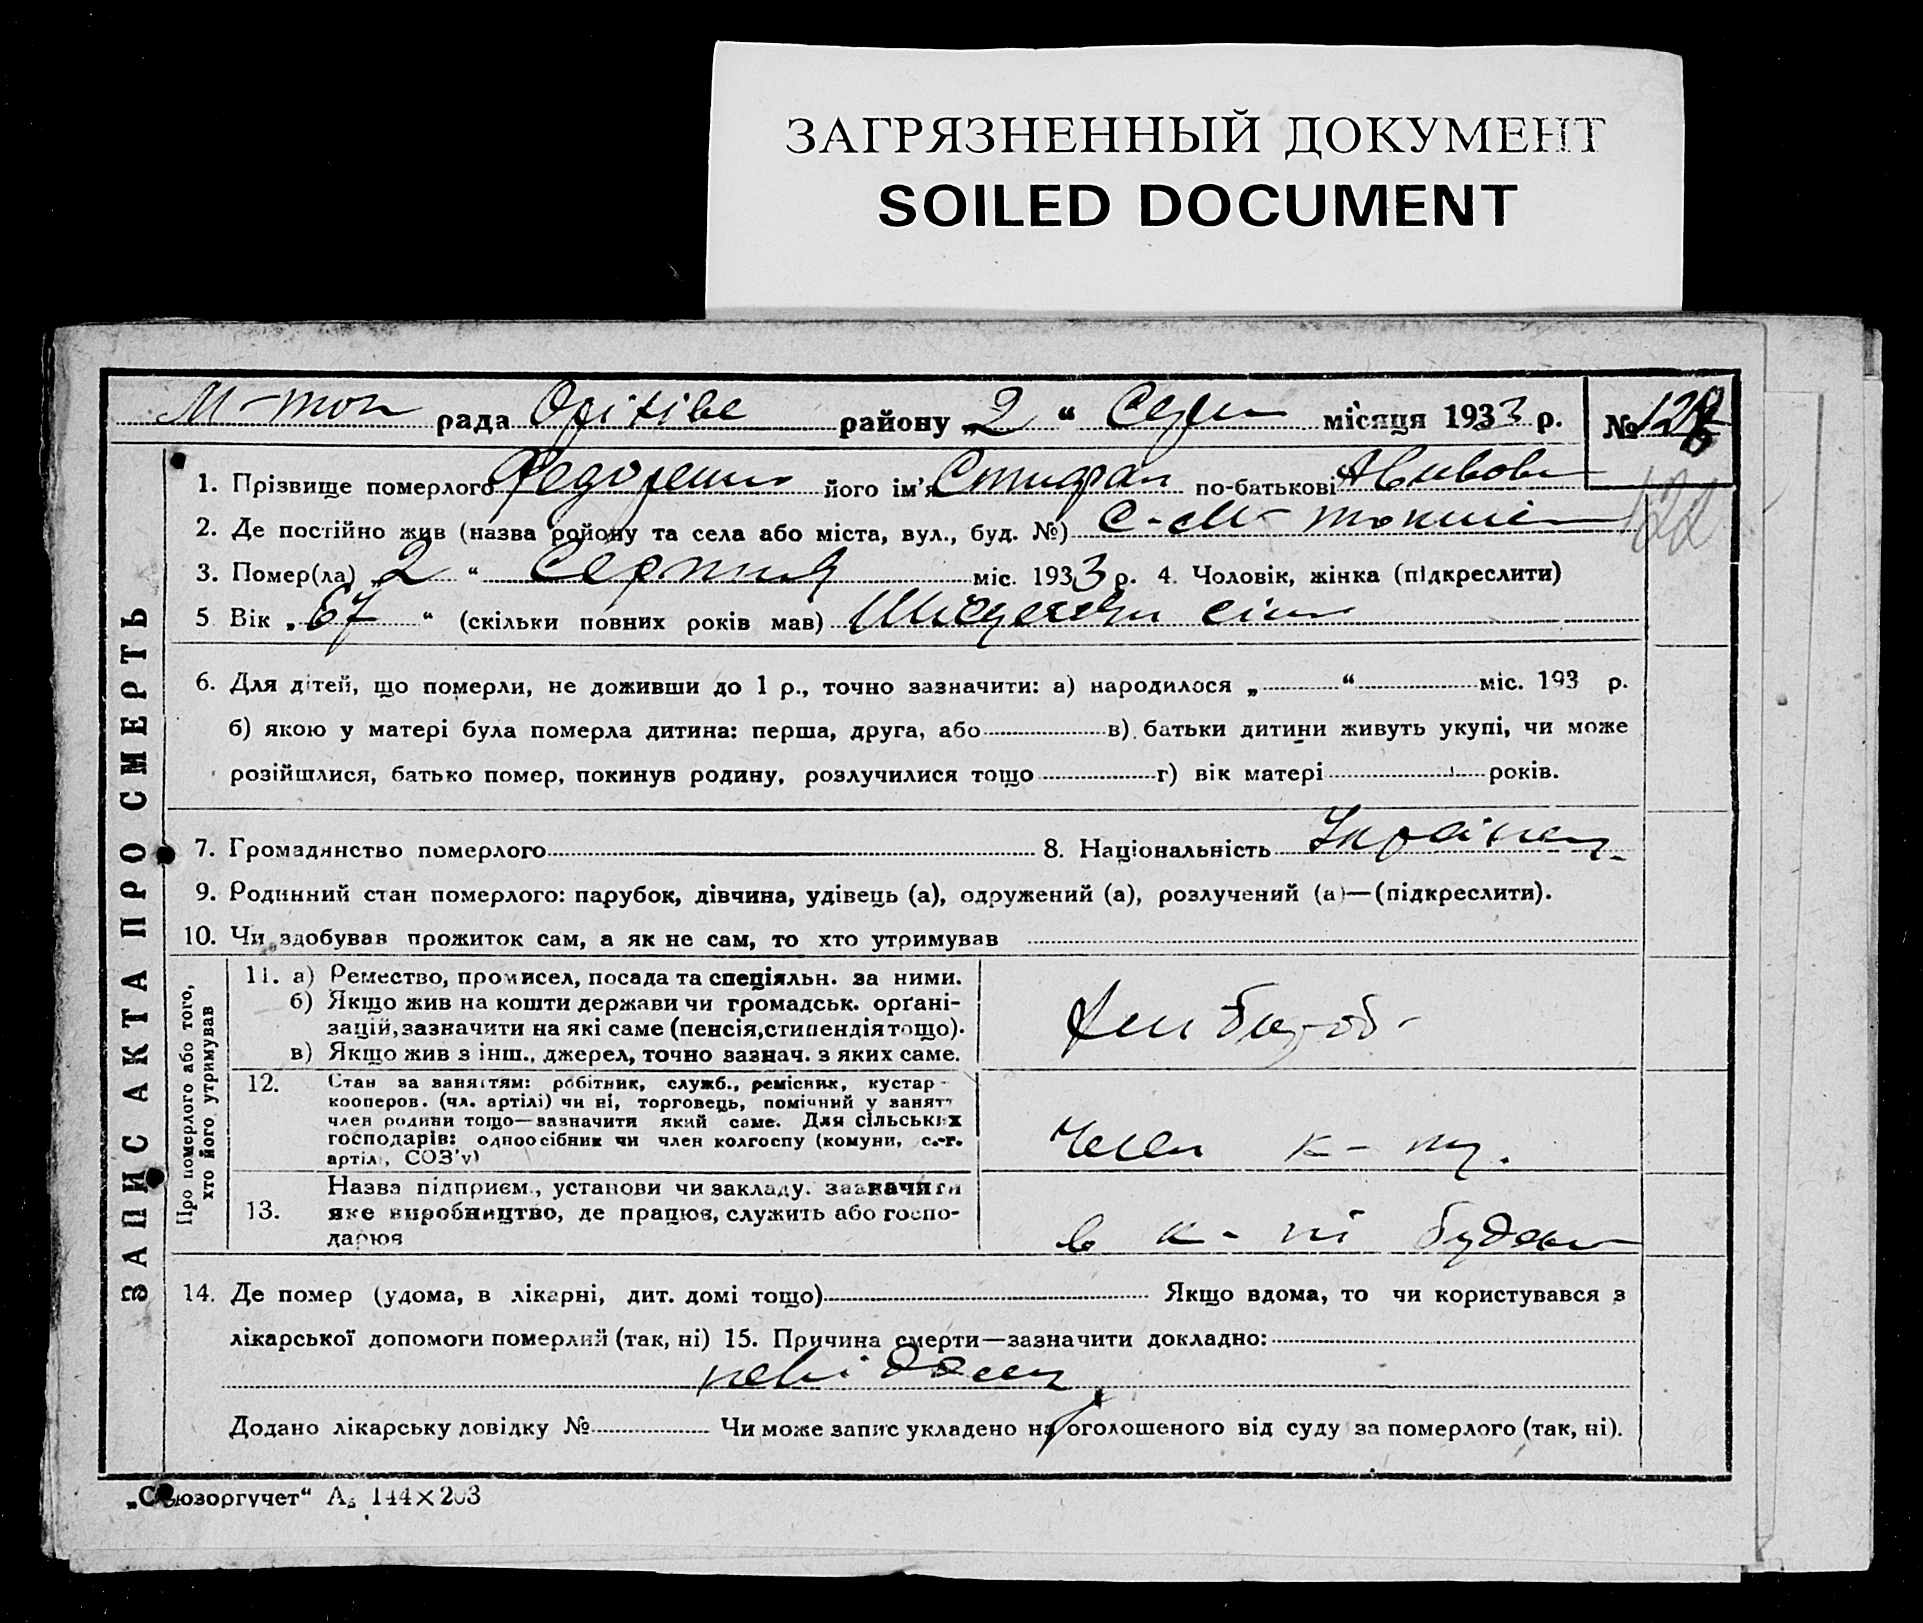 ЗАГРЯЗНЕННЫЙ ДОКУМЕНТ
SOILED DOCUMENT
М-ток рада Оріхівс району „2“ Серп місяця 1933 р. №
122
1. Прізвище померлого Федоренко його ім'я Стифан по-батькові
2. Де постійно жив (назва району та села або міста, вул., буд. №) С-М-
3. Помер(ла) „2“ Серпня міс. 1933 р. 4. Чоловік, жінка (підкреслити)
5 Вік „67“ (скільки повних років мав) Шісдесять сім
6. Для дітей, що померли, не доживши до 1 р., точно зазначити: а) народилося „ “ міс. 193 р.
б) якою у матері була померла дитина: перша, друга, або в) батьки дитини живуть укупі, чи може
розійшлися, батько помер, покинув родину, розлучилися тощо г) вік матері років.
7. Громадянство померлого 8. Національність Українец
9. Родинний стан померлого: парубок, дівчина, удівець (а), одружений (а), розлучений (а)—(підкреслити).
10. Чи здобував прожиток сам, а як не сам, то хто утримував
ЗАПИС АКТА ПРО СМЕРТЬ
Про померлого або того, хто його утримував
11. а) Ремество, промисел, посада та спеціяльн. за ними.
б) Якщо жив на кошти держави чи громадськ. орґані-
зацій, зазначити на які саме (пенсія, стипендія тощо).
в) Якщо жив з інш., джерел, точно зазнач. з яких саме.
12. Стан за заняттям: робітник, служб., ремісник, кустар
кооперов. (чл. артілі) чи ні, торговець, помічний у занятт
член родини тощо—зазначити який саме. Для сільських
господарів: одноосібник чи член колгоспу (комуни, с.-г.
артілі, СОЗ'у)
член к-пу.
13. Назва підприєм., установи чи закладу. зазначити
яке виробництво, де працює, служить або госпо-
дарює
в к-пі
14. Де помер (удома, в лікарні, дит. домі тощо) Якщо вдома, то чи користувався з
лікарської допомоги померлий (так, ні) 15. Причина смерти—зазначити докладно:
невідомо
Додано лікарську довідку № Чи може запис укладено на оголошеного від суду за померлого (так, ні).
„Союзоргучет“ А₅ 144×203